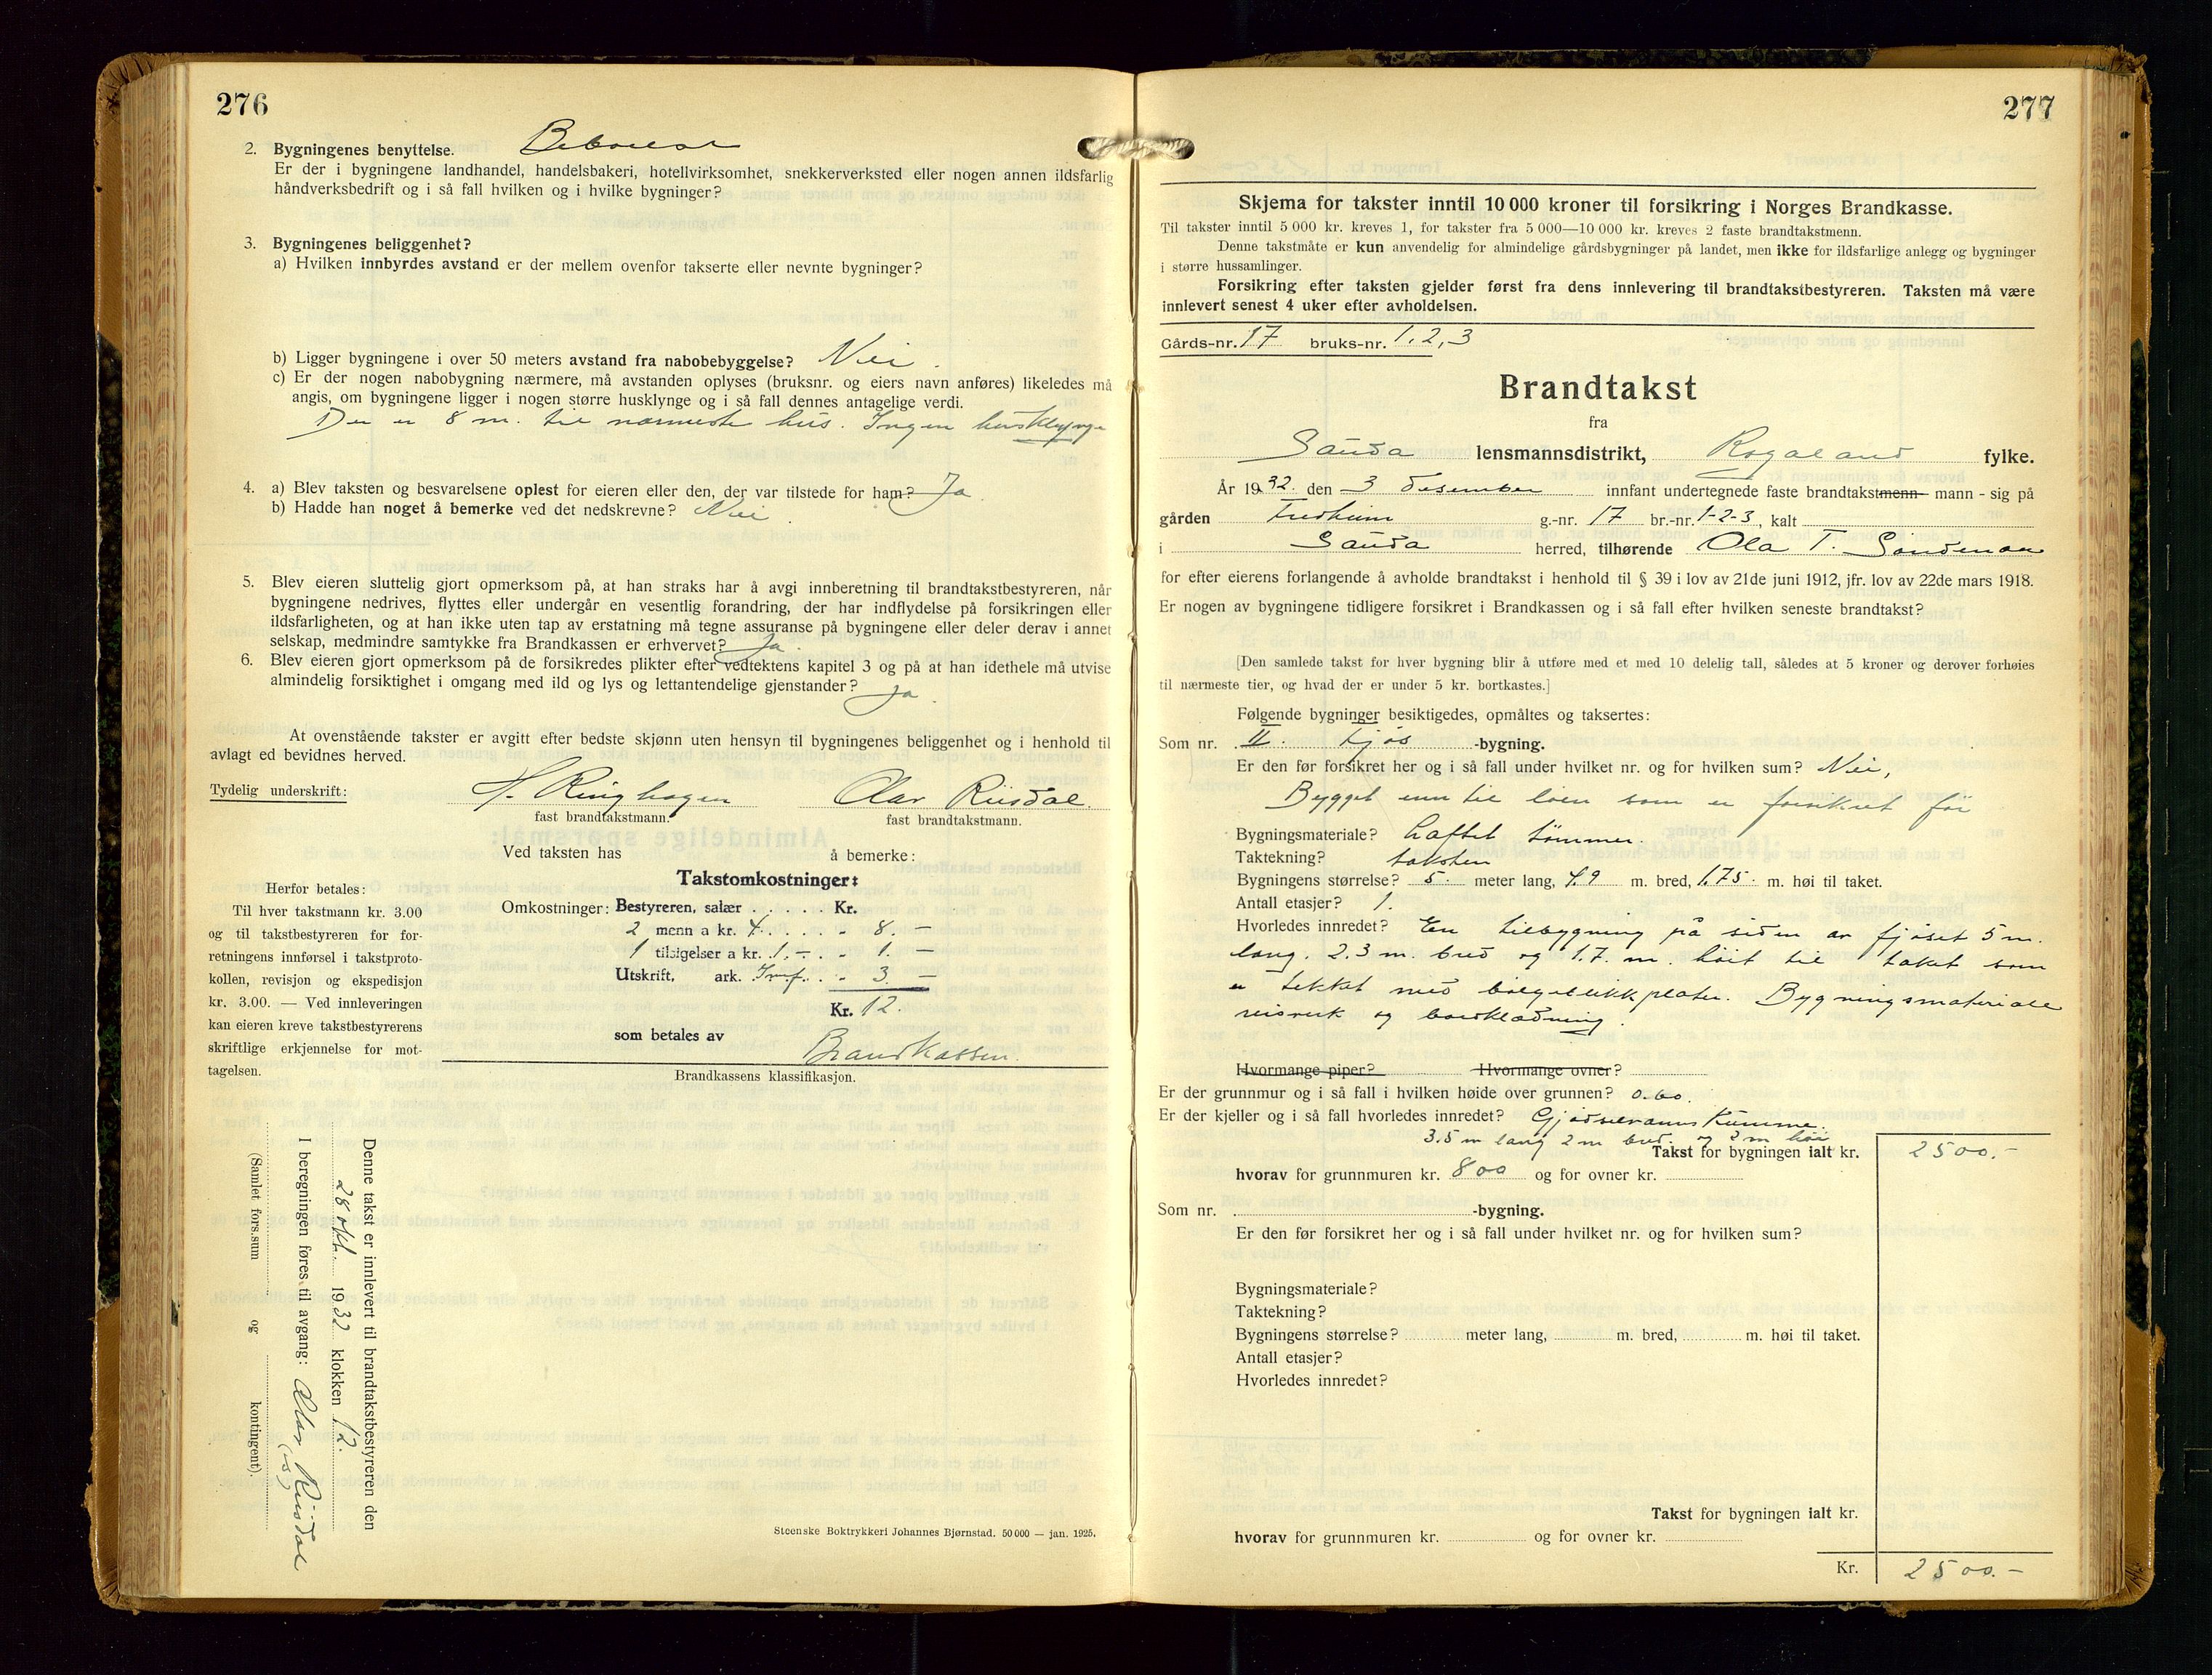 276
2. Bygningenes benyttelse. Beboelse
Er der i bygningene landhandel, handelsbakeri, hotellvirksomhet, snekkerverksted eller nogen annen ildsfarlig
håndverksbedrift og i så fall hvilken og i hvilke bygninger?
3. Bygningenes beliggenhet?
a) Hvilken innbyrdes avstand er der mellem ovenfor takserte eller nevnte bygninger?
b) Ligger bygningene i over 50 meters avstand fra nabobebyggelse? Nei.
c) Er der nogen nabobygning nærmere, må avstanden oplyses (bruksnr. og eiers navn anføres) likeledes må
angis, om bygningene ligger i nogen større husklynge og i så fall dennes antagelige verdi.
Der er 8 m. til nærmeste hus. Ingen husklynge
4. a) Blev taksten og besvarelsene oplest for eieren eller den, der var tilstede for ham? Ja.
b) Hadde han noget å bemerke ved det nedskrevne? Nei.
5. Blev eieren sluttelig gjort opmerksom på, at han straks har å avgi innberetning til brandtakstbestyreren, når
bygningene nedrives, flyttes eller undergår en vesentlig forandring, der har indflydelse på forsikringen eller
ildsfarligheten, og at han ikke uten tap av erstatning må tegne assuranse på bygningene eller deler derav i annet
selskap, medmindre samtykke fra Brandkassen er erhvervet? Ja.
6. Blev eieren gjort opmerksom på de forsikredes plikter efter vedtektens kapitel 3 og på at han idethele må utvise
almindelig forsiktighet i omgang med ild og lys og lettantendelige gjenstander? Ja.
At ovenstående takster er avgitt efter bedste skjønn uten hensyn til bygningenes beliggenhet og i henhold til
avlagt ed bevidnes herved.
Tydelig underskrift: H. Ringhagen Olav Riisdal.
fast brandtakstmann. fast brandtakstmann.
Ved taksten has å bemerke:
Takstomkostninger:
Herfor betales:
Til hver takstmann kr. 3.00
og til takstbestyreren for for-
retningens innførsel i takstproto-
kollen, revisjon og ekspedisjon
kr. 3.00. — Ved innleveringen
kan eieren kreve takstbestyrerens
skriftlige erkjennelse for mot-
tagelsen.
Omkostninger: Bestyreren, salær . . . . . Kr.
2 menn a kr. 4. . . . . „ 8. —
1 tilsigelser a kr. 1.- . „ 1. —
Utskrift, ark. Innf. . „ 3. —
Kr. 12.
som betales av Brandkassen.
Brandkassens klassifikasjon.
Denne takst er innlevert til brandtakstbestyreren den
28 okt. 1932 klokken 12.
I beregningen føres til avgang: Olav Riisdal
(s)
(Samlet fors.sum og kontingent).
Steenske Boktrykkeri Johannes Bjørnstad. 50 000 — jan. 1925.
277
Skjema for takster inntil 10 000 kroner til forsikring i Norges Brandkasse.
Til takster inntil 5 000 kr. kreves 1, for takster fra 5 000—10 000 kr. kreves 2 faste brandtakstmenn.
Denne takstmåte er kun anvendelig for almindelige gårdsbygninger på landet, men ikke for ildsfarlige anlegg og bygninger
i større hussamlinger.
Forsikring efter taksten gjelder først fra dens innlevering til brandtakstbestyreren. Taksten må være
innlevert senest 4 uker efter avholdelsen.
Gårds-nr. 17 bruks-nr. 1, 2, 3
Brandtakst
fra
Sauda lensmannsdistrikt, Rogaland fylke.
År 1932. den 3 desember innfant undertegnede faste brandtakstmenn mann - sig på
gården Fredheim g.-nr. 17 br.-nr. 1-2-3, kalt
i Sauda herred, tilhørende Ola T. Søndenaa
for efter eierens forlangende å avholde brandtakst i henhold til § 39 i lov av 21de juni 1912, jfr. lov av 22de mars 1918.
Er nogen av bygningene tidligere forsikret i Brandkassen og i så fall efter hvilken seneste brandtakst?
[Den samlede takst for hver bygning blir å utføre med et med 10 delelig tall, således at 5 kroner og derover forhøies
til nærmeste tier, og hvad der er under 5 kr. bortkastes.]
Følgende bygninger besiktigedes, opmåltes og taksertes:
Som nr. II. Fjøs -bygning.
Er den før forsikret her og i så fall under hvilket nr. og for hvilken sum? Nei,
Bygget inn til løen som er forsikret før
Bygningsmateriale? Laftet tømmer.
Taktekning? taksten
Bygningens størrelse? 5. meter lang, 4.9 m. bred, 1.75. m. høi til taket.
Antall etasjer? 1.
Hvorledes innredet? En tilbygning på siden av fjøset 5 m.
lang. 2.3 m. bred og 1.7. m. høit til taket som
er tekket med bølgeblikkplater. Bygningsmateriale
reisverk og bordklædning.
Hvormange piper? Hvormange ovner?
Er der grunnmur og i så fall i hvilken høide over grunnen? 0.60.
Er der kjeller og i så fall hvorledes innredet? Gjødselvannskumme.
3.5 m lang 2 m bred. og 2 m høi
Takst for bygningen ialt kr. 2500.-
hvorav for grunnmuren kr. 800 og for ovner kr.
Som nr. -bygning.
Er den før forsikret her og i så fall under hvilket nr. og for hvilken sum?
Bygningsmateriale?
Taktekning?
Bygningens størrelse? meter lang, m. bred, m. høi til taket.
Antall etasjer?
Hvorledes innredet?
Takst for bygningen ialt kr.
hvorav for grunnmuren kr. og for ovner kr.
Kr. 2500.-